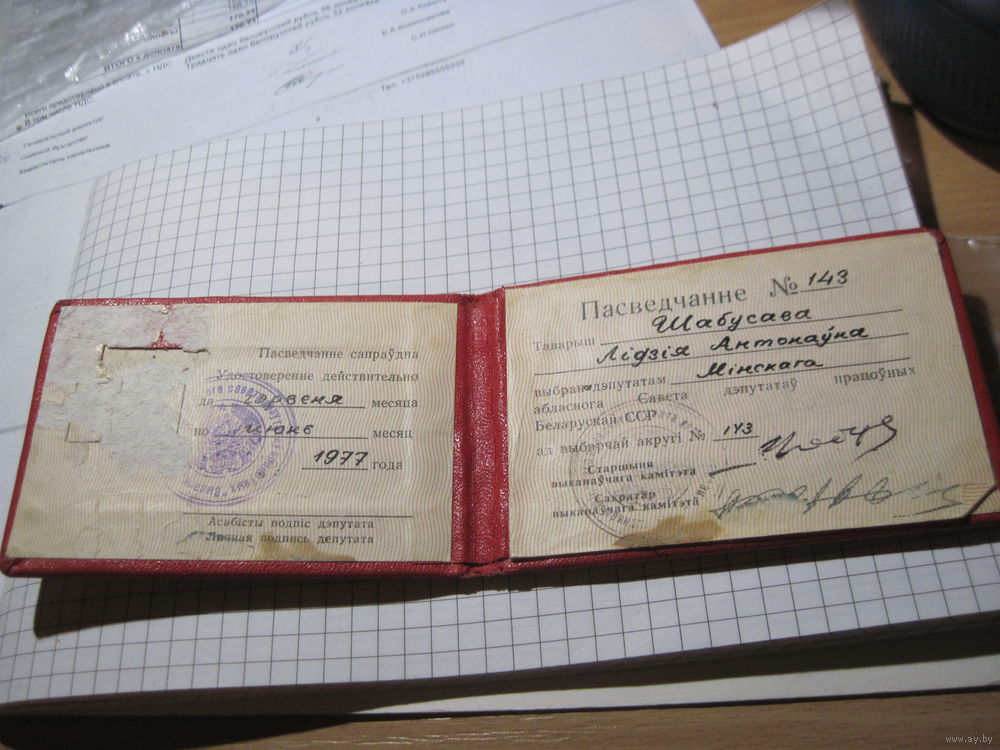 ИТОГО к доплате
Двести один белорусский рубль 56
Тридцать один белорусский рубль 32 копейки
Всего представлено к оплате, с НДС:
В том числе НДС
Генеральный директор
главный бухгалтер
Заместитель начальника
Тел. +375296555333
Пасведчанне сапраўдна
Удостоверение действительно
да чэрвеня месяца
по июнь месяц
1977 года
Асабісты подпіс дэпутата
Личная подпись депутата
Пасведчанне № 143
Таварыш Шабусава
Лідзія Антонаўна
выбрана дэпутатам Мінскага
абласнога Савета дэпутатаў працоўных
Беларускай ССР
ад выбарчай акругі № 143
Старшыня
выканаўчага камітэта
Сакратар
выканаўчага камітэта
www.ay.by